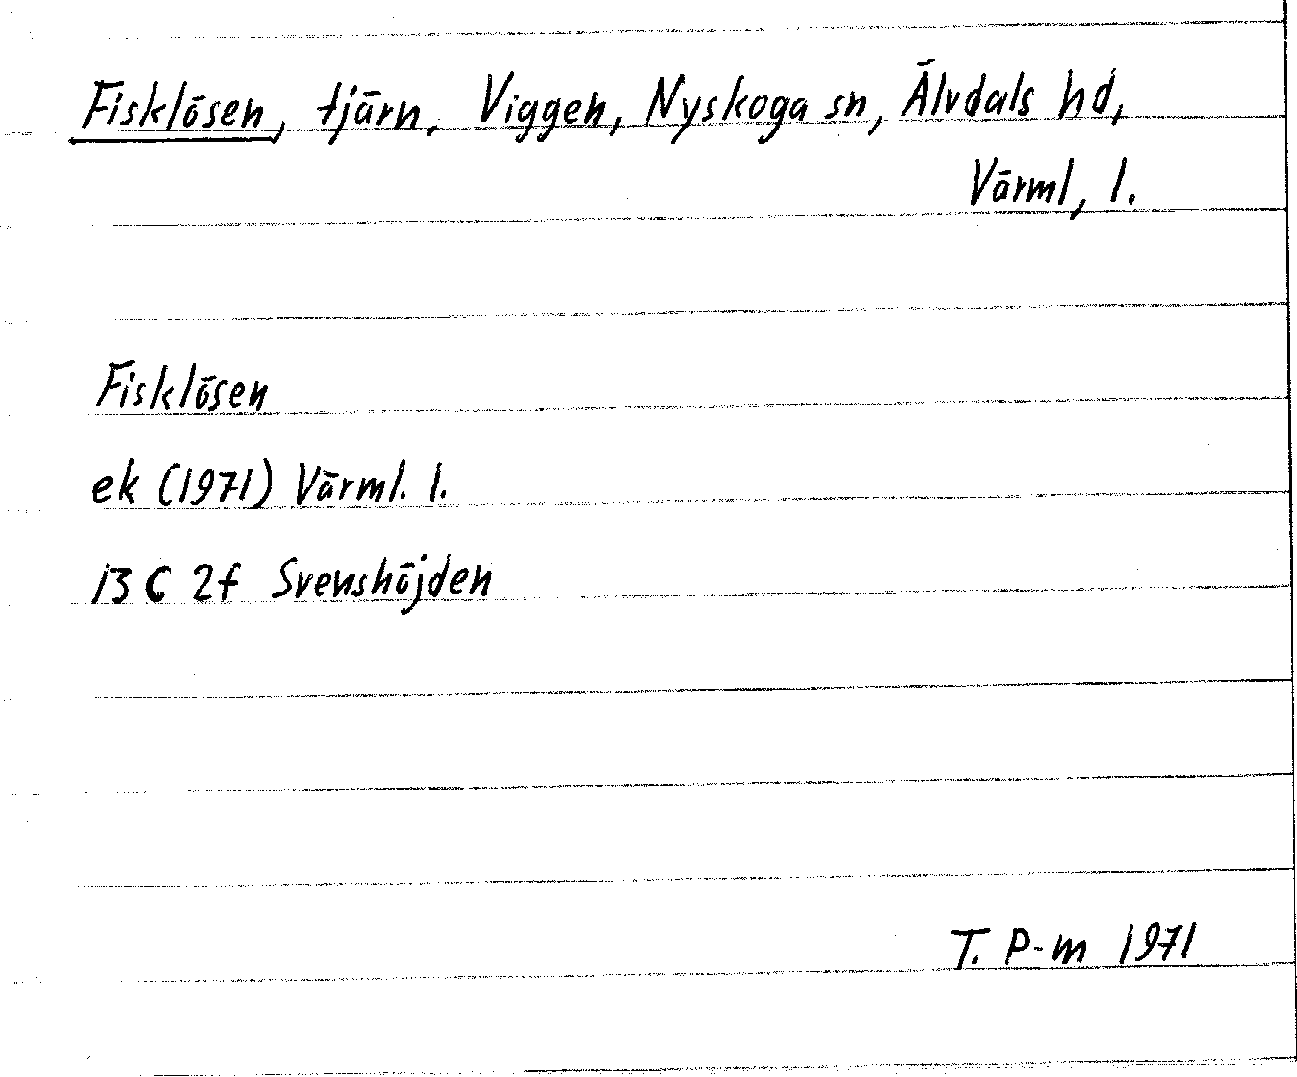 Fisklösen, tjärn, Viggen, Nyskoga sn, Älvdals hd,
Värml, l.
Fisklösen
ek (1971) Värml. l.
13 C 2f Svenshöjden
T. P-m 1971